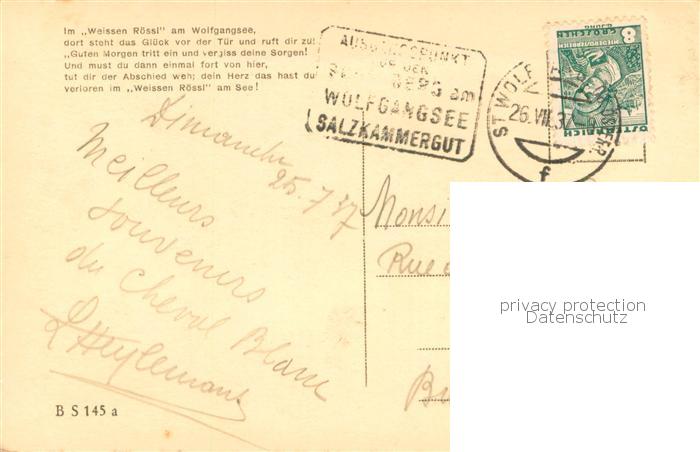 Im „Weissen Rössl" am Wolfgangsee,
dort steht das Glück vor der Tür und ruft dir zu:
„Guten Morgen tritt ein und vergiss deine Sorgen!
Und must du dann einmal fort von hier,
tut dir der Abschied weh; dein Herz das hast du
verloren im „Weissen Rössl" am See!
AUSGANGSPUNKT
BERG am
WOLFGANGSEE
SALZKAMMERGUT
ST. WOLF
26. VII. 37
f
8
GROSCHEN
ÖSTERREICH
Dimanche
25.7 37
Meilleurs
souvenirs
du Cheval Blanc
Monsi
Rue
B S 145 a
privacy protection
Datenschutz